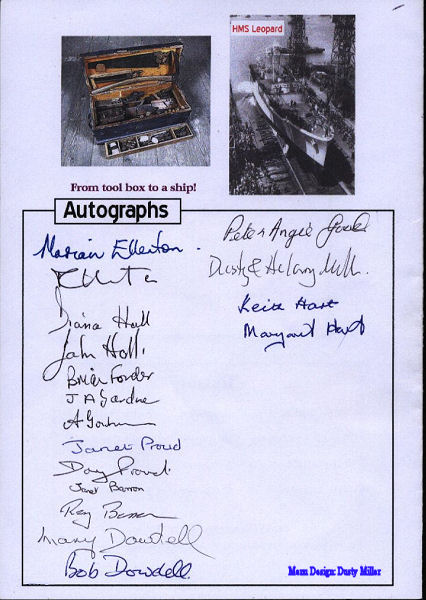 HMS Leopard
From tool box to a ship!
Autographs
Marian Ellerton.
Diana Hall
John Hall.
Brian Forder
J A Gardner
Janet Proud
Doug Proud.
Janet Barron
Ray Barron
Mary Dowdell
Bob Dowdell.
Peter & Angie
Dusty & Hilary Miller.
Keith Hart
Margaret Hart
Menu Design: Dusty Miller